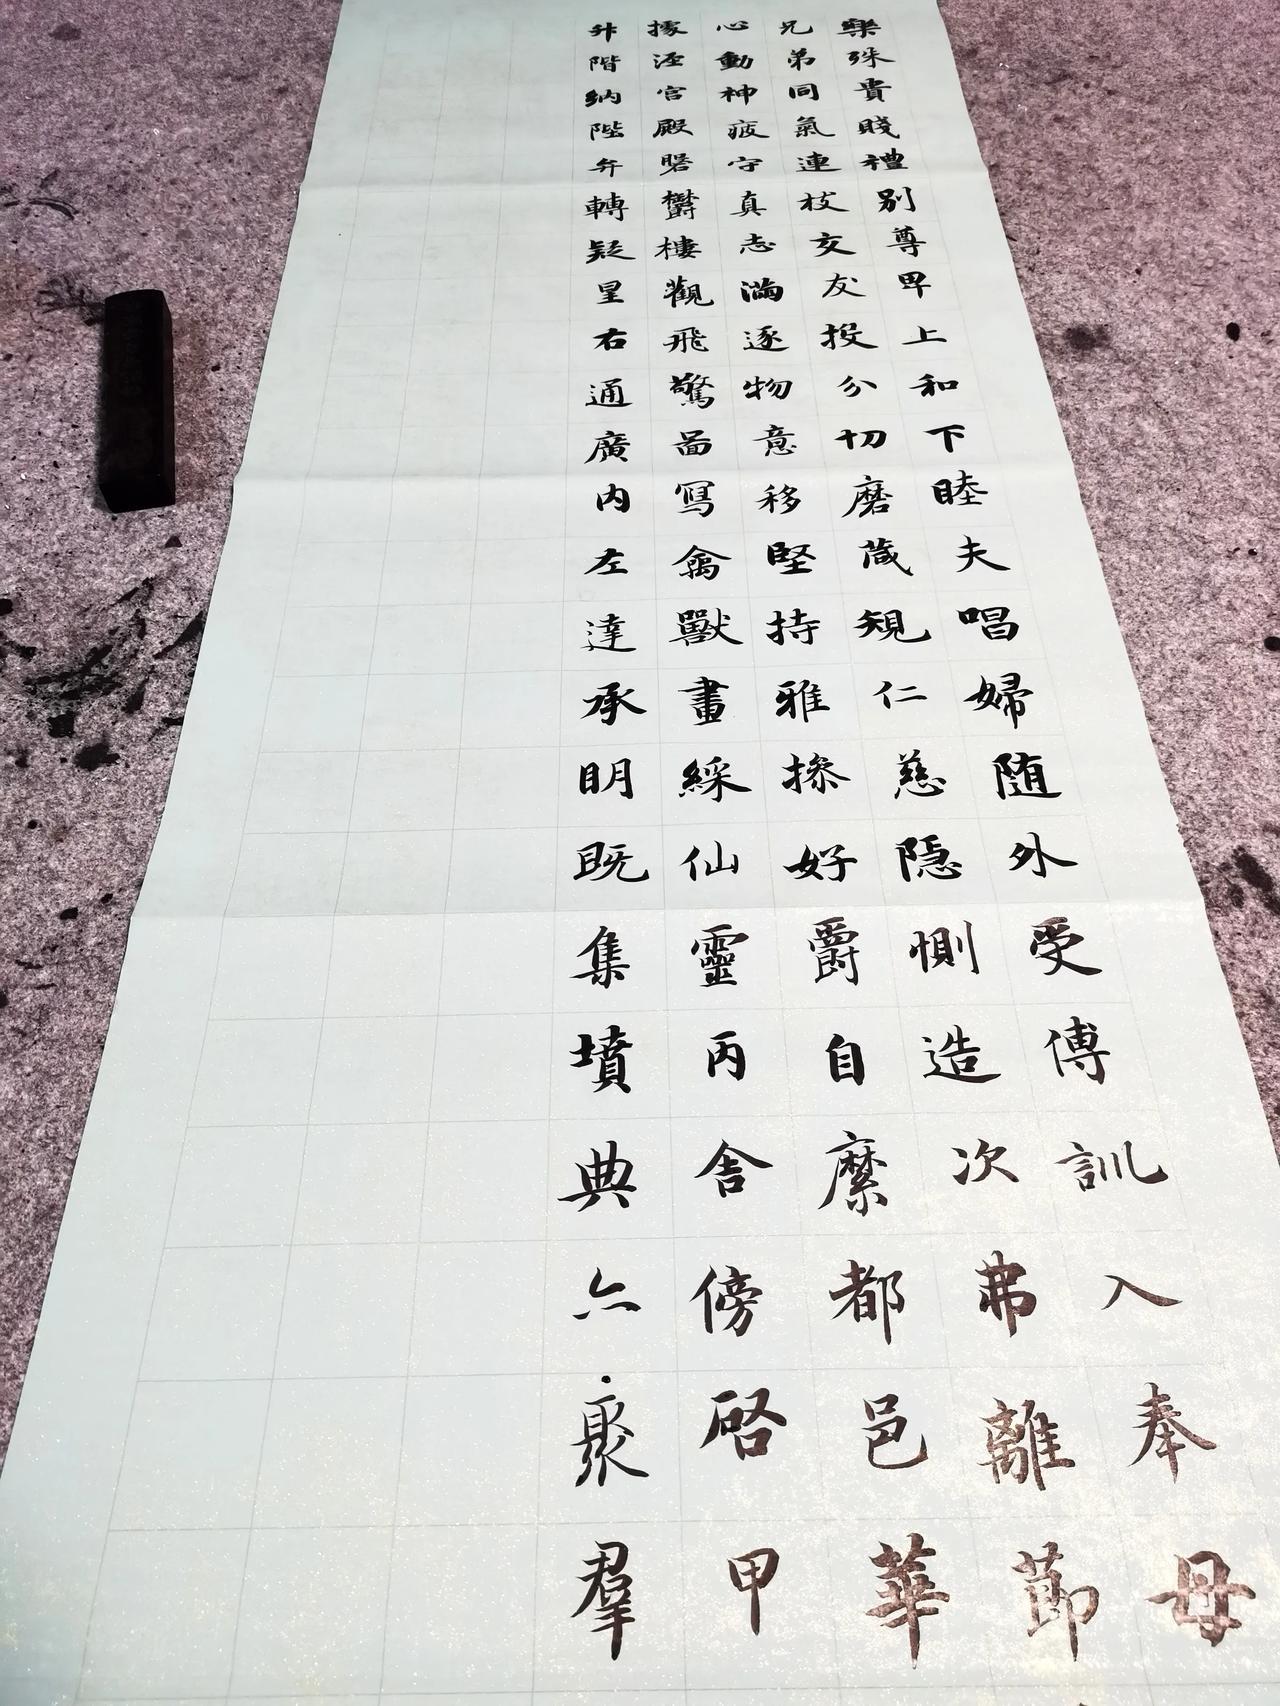 樂殊貴賤禮別尊卑上和下睦夫唱婦随外受傅訓入奉母
兄弟同氣連枝交友投分切磨葴規仁慈隐惻造次弗離莭
心動神疲守真志滿逐物意移堅持雅操好爵自縻都邑華
據涇宮殿磐欝樓觀飛驚圖寫禽獸畫綵仙靈丙舎傍啓甲
升階納陛弁轉疑星右通廣內左達承明既集墳典亦聚羣